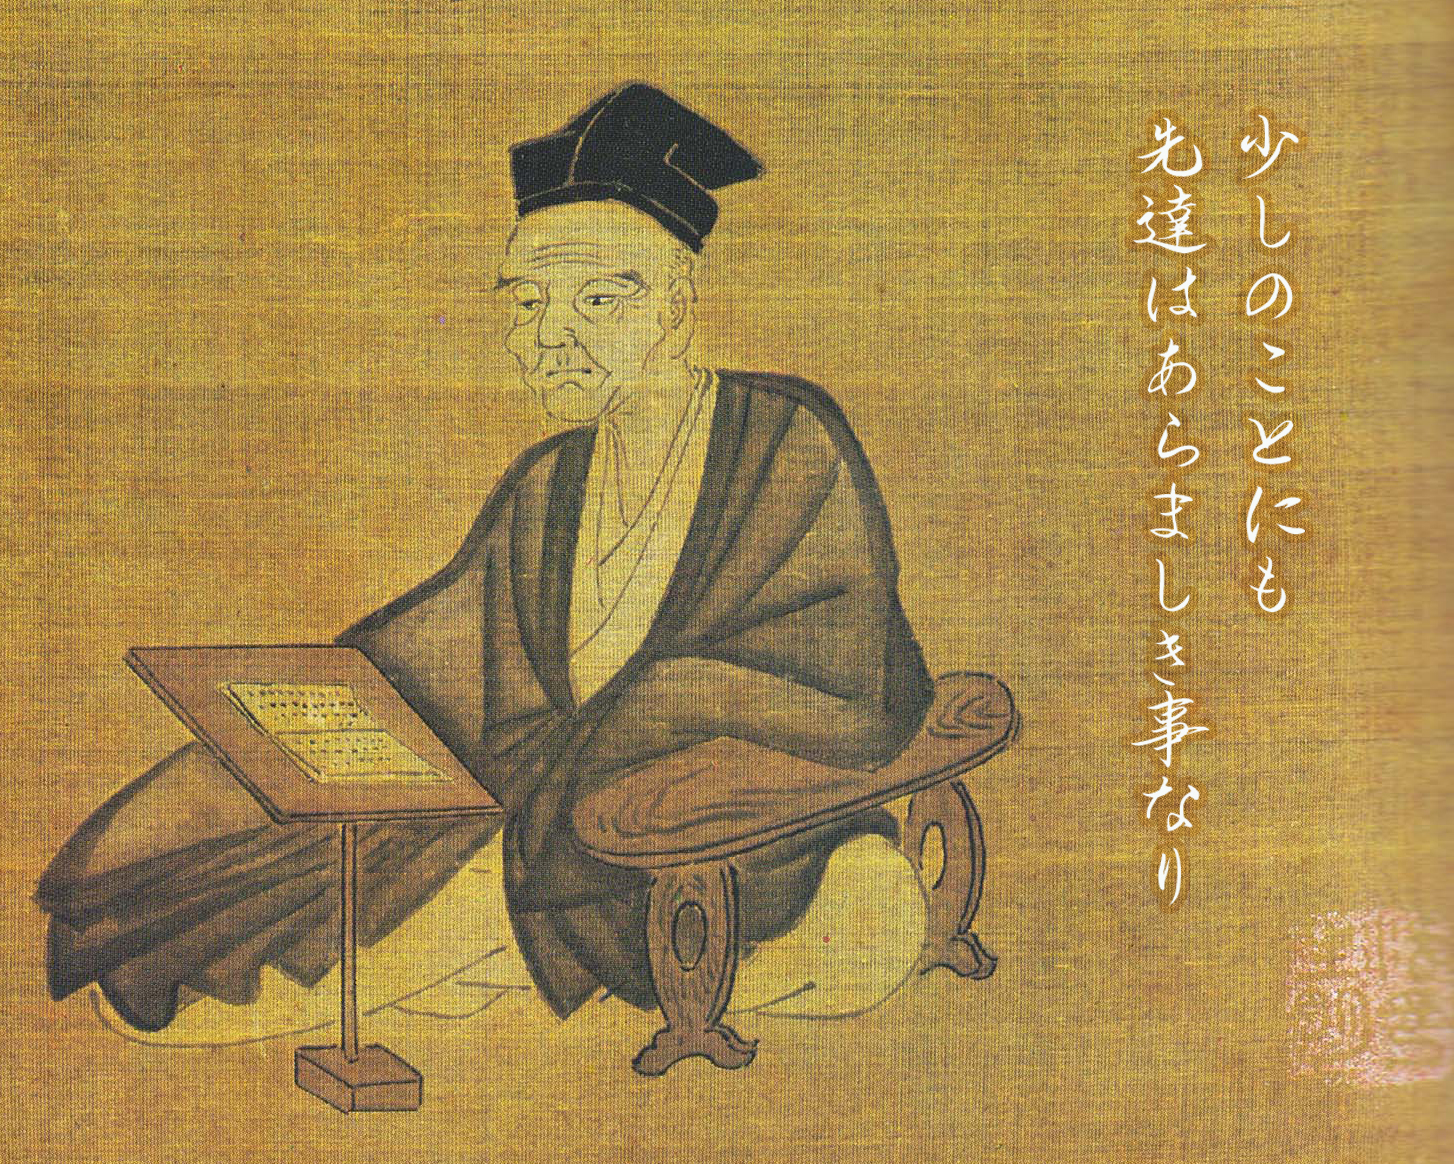 少しのことにも
先達はあらましき事なり